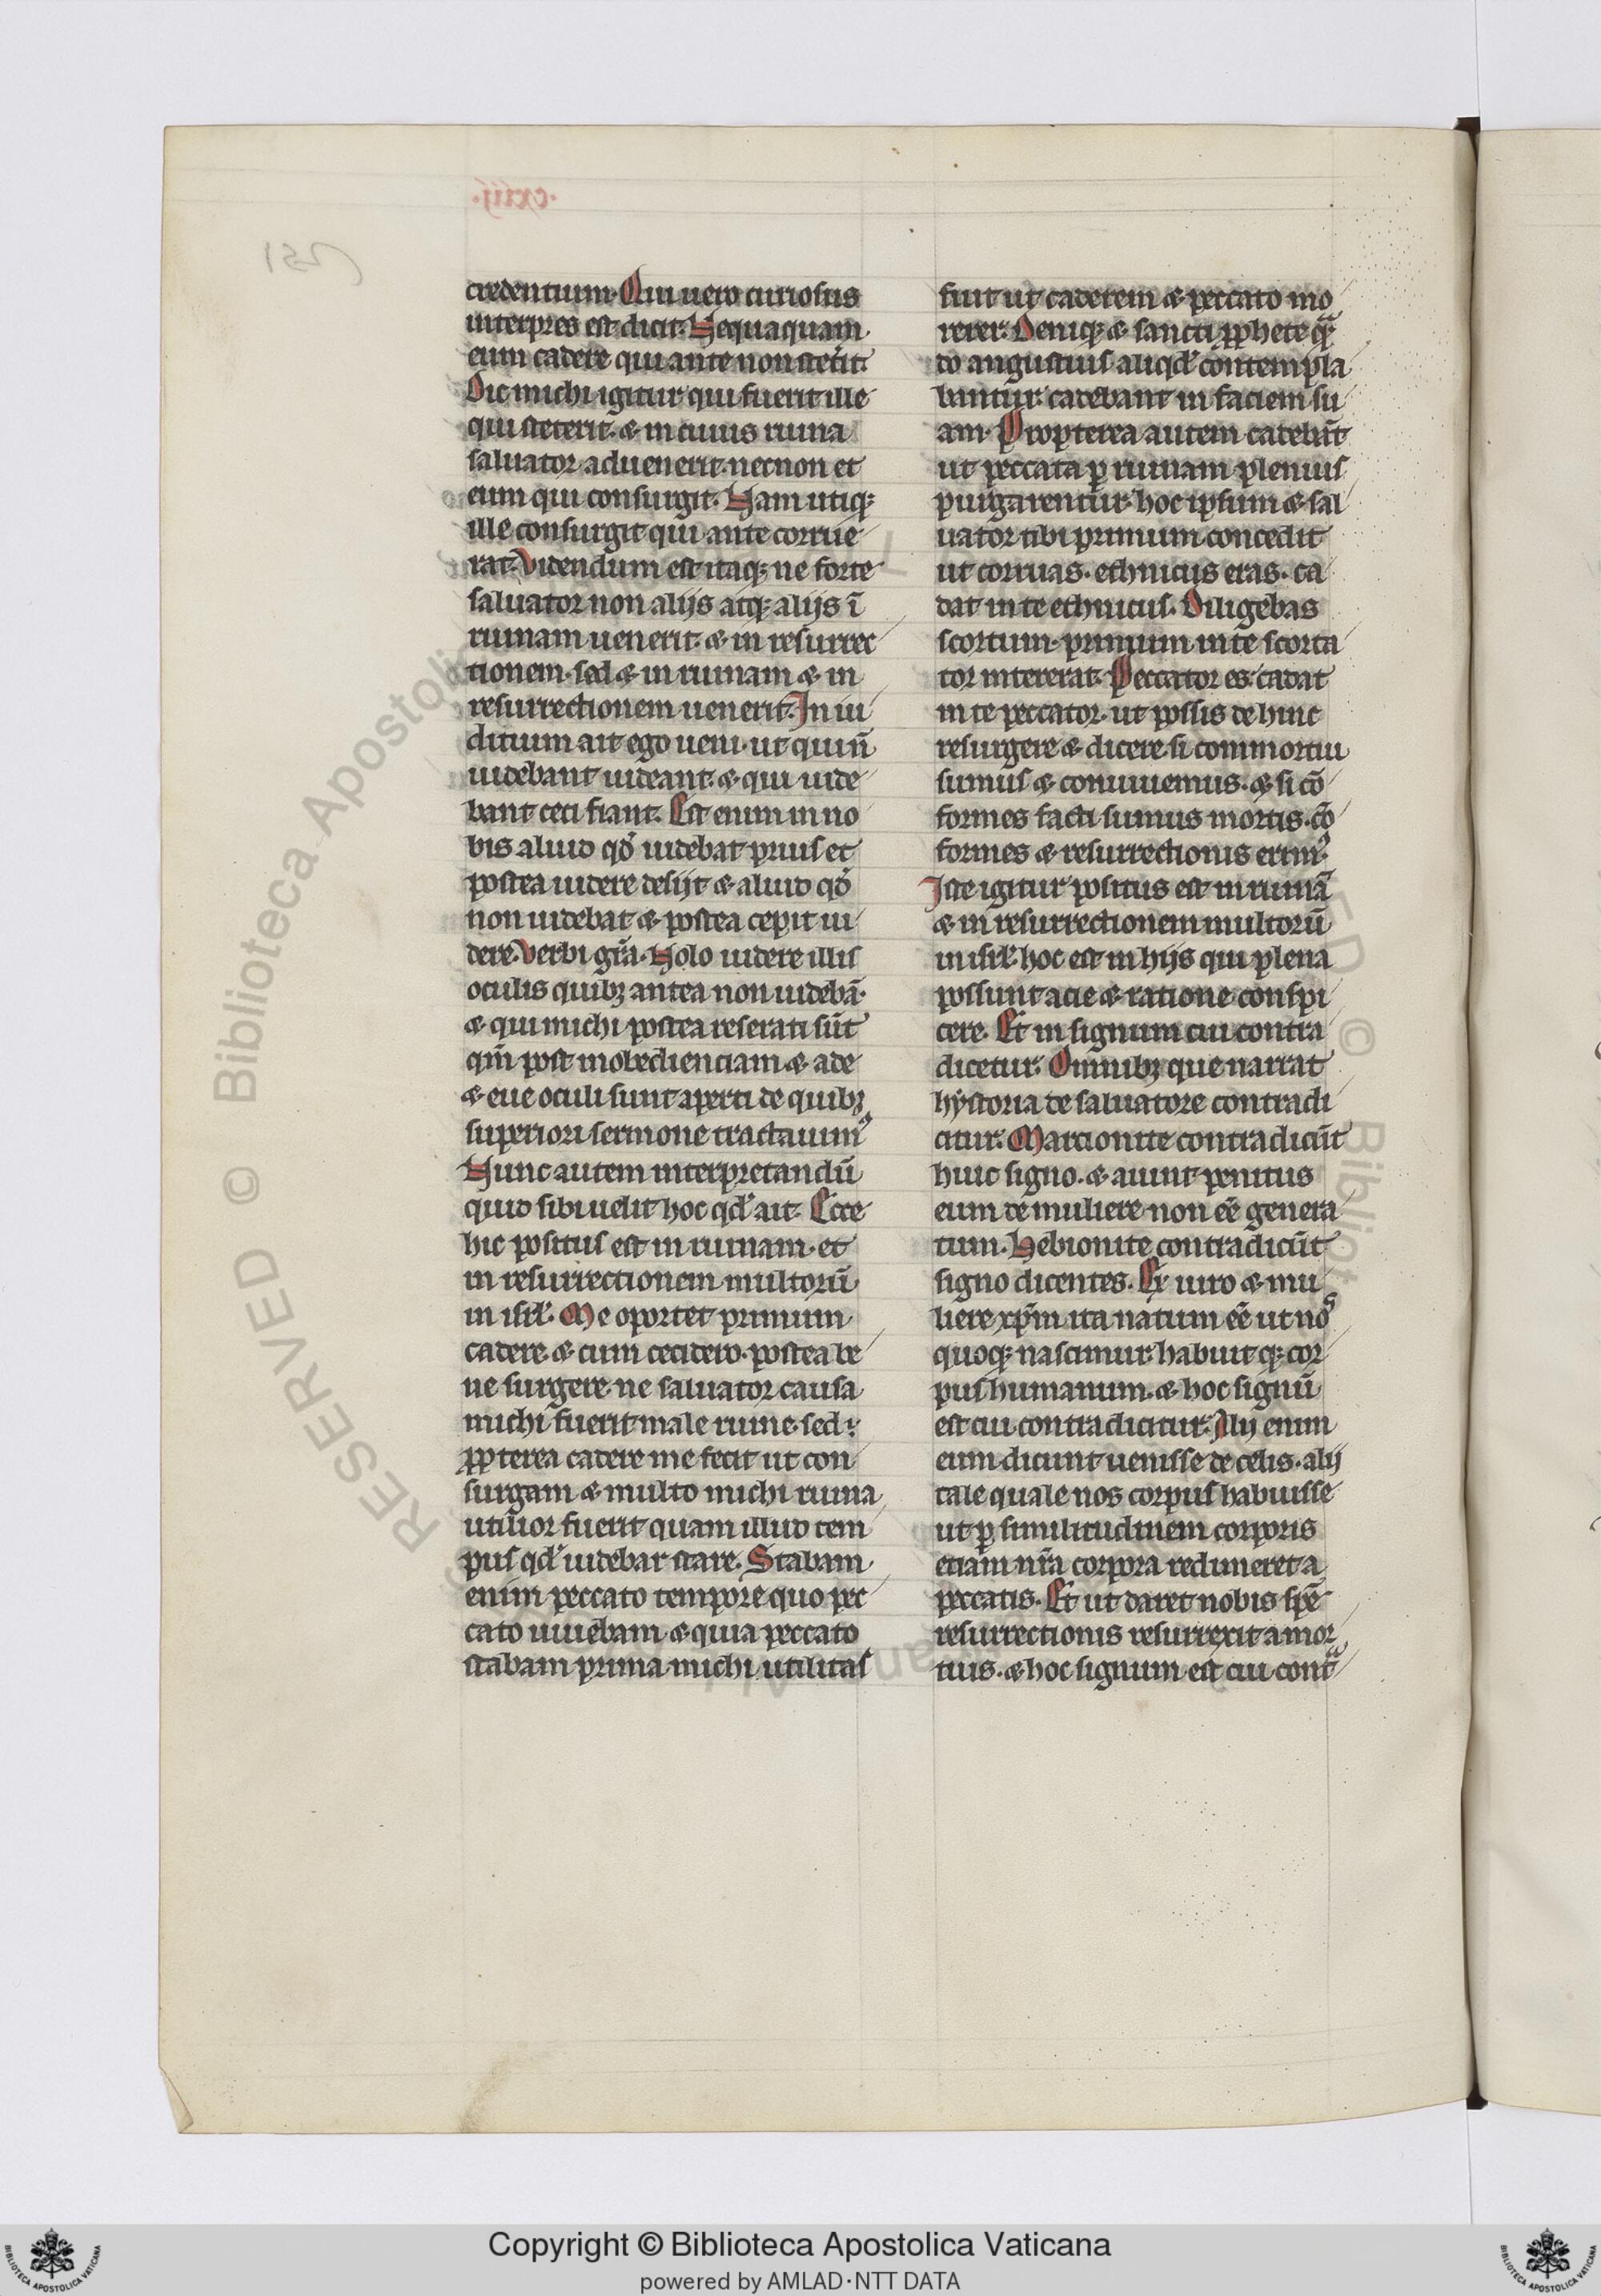 credentium. Qui uero curiosus
interpres est dicit. Nequaquam
eum cadere qui ante non steterit.
Dic michi igitur qui fuerit ille
qui steterit. & in cuius ruina
saluator aduenerit. necnon et
eum qui consurgit. Nam utiqꝫ
ille consurgit qui ante corrue
rat. Videndum est itaqꝫ ne forte
saluator non alijs atqꝫ alijs ĩ
ruinam uenerit. & in resurrec
tionem. sed & in ruinam & in
resurrectionem uenerit. In iu
ditium ait ego ueni. ut qui ñ
uidebant uideant. & qui uide
bant ceci fiant. Est enim in no
bis aliud qď uidebat prius et
postea uidere desijt & aliud qď
non uidebat & postea cepit ui
dere. Verbi gr̃a. Nolo uidere illis
oculis quibꝫ antea non uidebã.
& qui michi postea reserati sũt
qm̃ post inobedienciam & ade
& eue oculi sunt aperti de quibꝫ
superiori sermone tractauimꝰ
Nunc autem interpretandũ
quid sibi uelit hoc qď ait. Ecce
hic positus est in ruinam. et
in resurrectionem multorũ
in isrl̃. Me oportet primum
cadere. & cum cecidero. postea be
ne surgere. ne saluator causa
michi fuerit male ruine. sed
ꝓpterea cadere me fecit ut con
surgam & multo michi ruina
utilior fuerit quam illud tem
pus qď uidebar stare. Stabam
enim peccato tempore quo pec
cato uiuebam. & quia peccato
stabam prima michi utilitas
fuit ut caderem & peccato mo
rerer. Deniqꝫ & sancti ꝓphete qñ
do angustius aliqď contempla
bantur. cadebant in faciem su
am. Propterea autem cadebãt
ut peccata ꝑ ruinam plenius
purgarentur. hoc ipsum & sal
uator tibi primum concedit
ut corruas. ethnicus eras. ca
dat in te ethnicus. Diligebas
scortum. primum in te scorta
tor intererat. Peccator es. cadat
in te peccator. ut possis dehinc
resurgere & dicere. si commortui
sumus & conuiuemus. & si cõ
formes facti sumus mortis. cõ
formes & resurrectionis erimꝰ.
Iste igitur positus est in ruinã
& in resurrectionem multorũ
in isrl̃. hoc est in hijs qui plena
possunt acie & ratione conspi
cere. Et in signum cui contra
dicetur. Omnibꝫ que narrat
hystoria de saluatore contradi
citur. Marcionite contradicũt
huic signo. & aiunt penitus
eum de muliere non eẽ genera
tum. Hebionite contradicũt
signo dicentes. Ex uiro & mu
liere xp̃m ita natum eẽ ut noˢ
quoqꝫ nascimur. habuit qꝫ cor
pus humanum. & hoc signũ
est cui contradicitur. Alij enim
eum dicunt uenisse de celis. alij
tale quale nos corpus habuisse
ut ꝑ similitudinem corporis
etiam nr̃a corpora redimeret a
peccatis. Et ut daret nobis spẽ
resurrectionis resurrexit a mor
tuis. & hoc signum est cui contᵃ
RESERVED © Biblioteca Apostolica
Copyright © Biblioteca Apostolica Vaticana
powered by AMLAD·NTT DATA